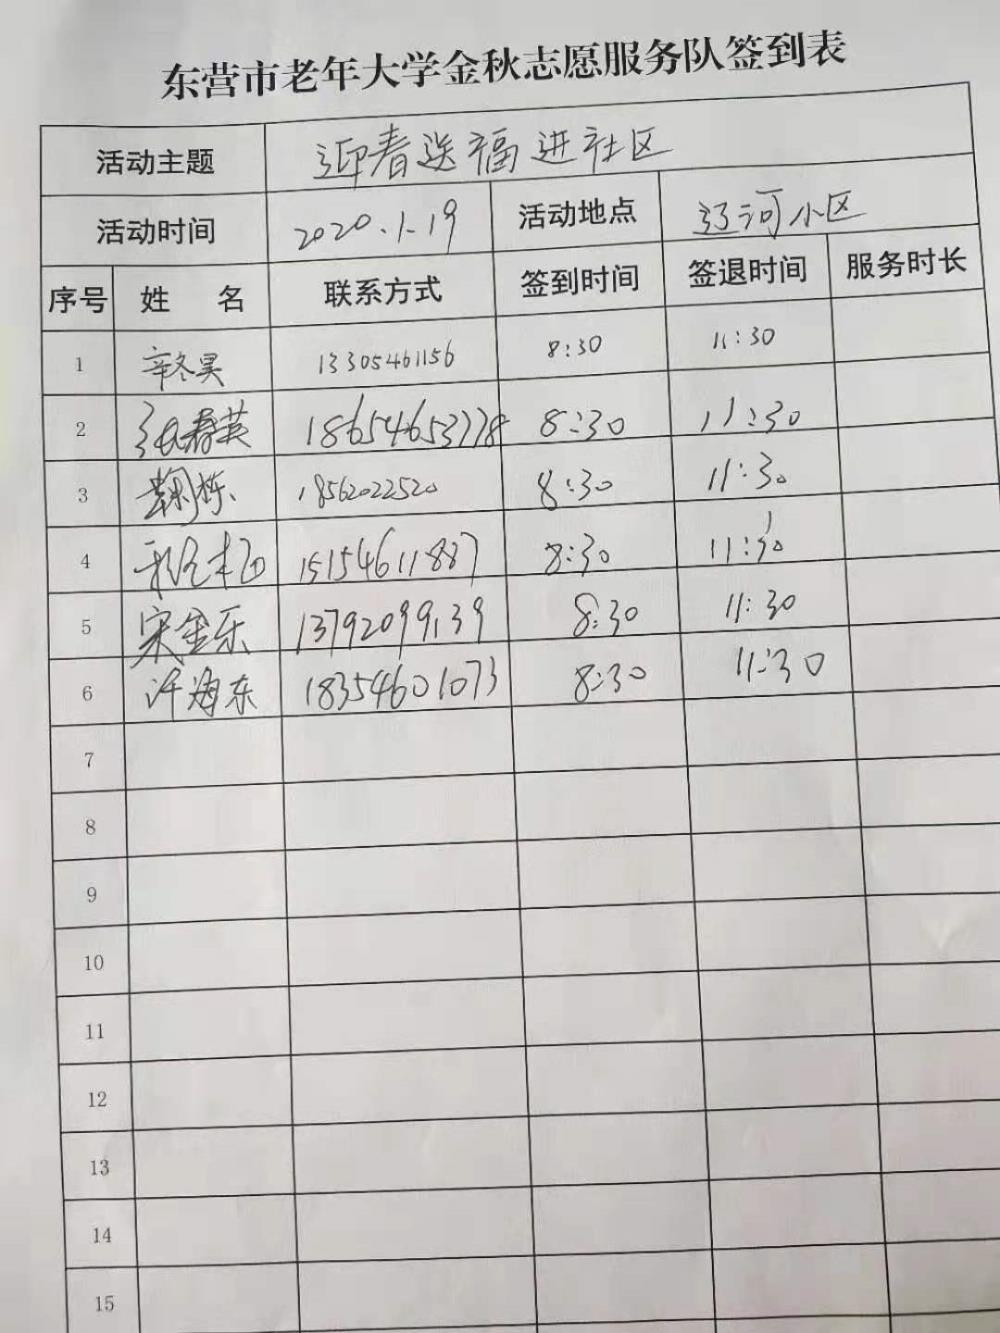 东营市老年大学金秋志愿服务队签到表
活动主题 迎春送福进社区
活动时间 2020.1.19 活动地点 辽河小区
序号 姓 名 联系方式 签到时间 签退时间 服务时长
1 辛冬昊 13305461156 8:30 11:30
2 张春英 18654653778 8:30 11:30
3 鞠栋 18562022520 8:30 11:30
4 15154611887 8:30 11:30
5 宋金乐 13792099139 8:30 11:30
6 许海东 18354601073 8:30 11:30
7
8
9
10
11
12
13
14
15